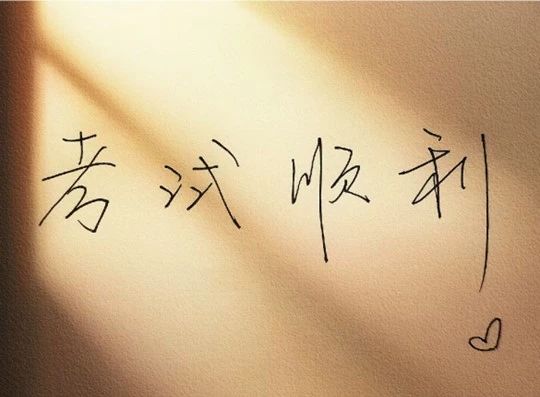 考试顺利